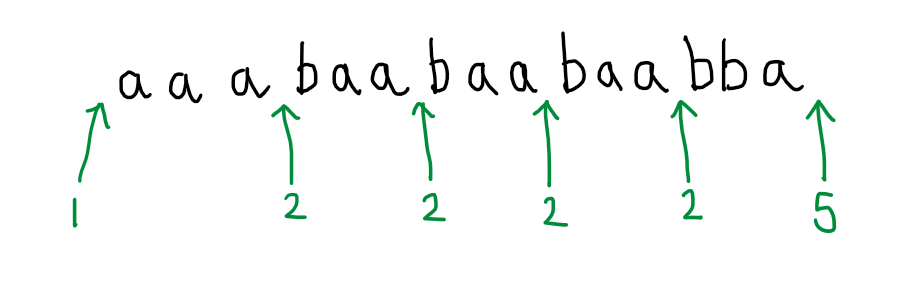 a a a b a a b a a b a a b b a
1 2 2 2 2 5